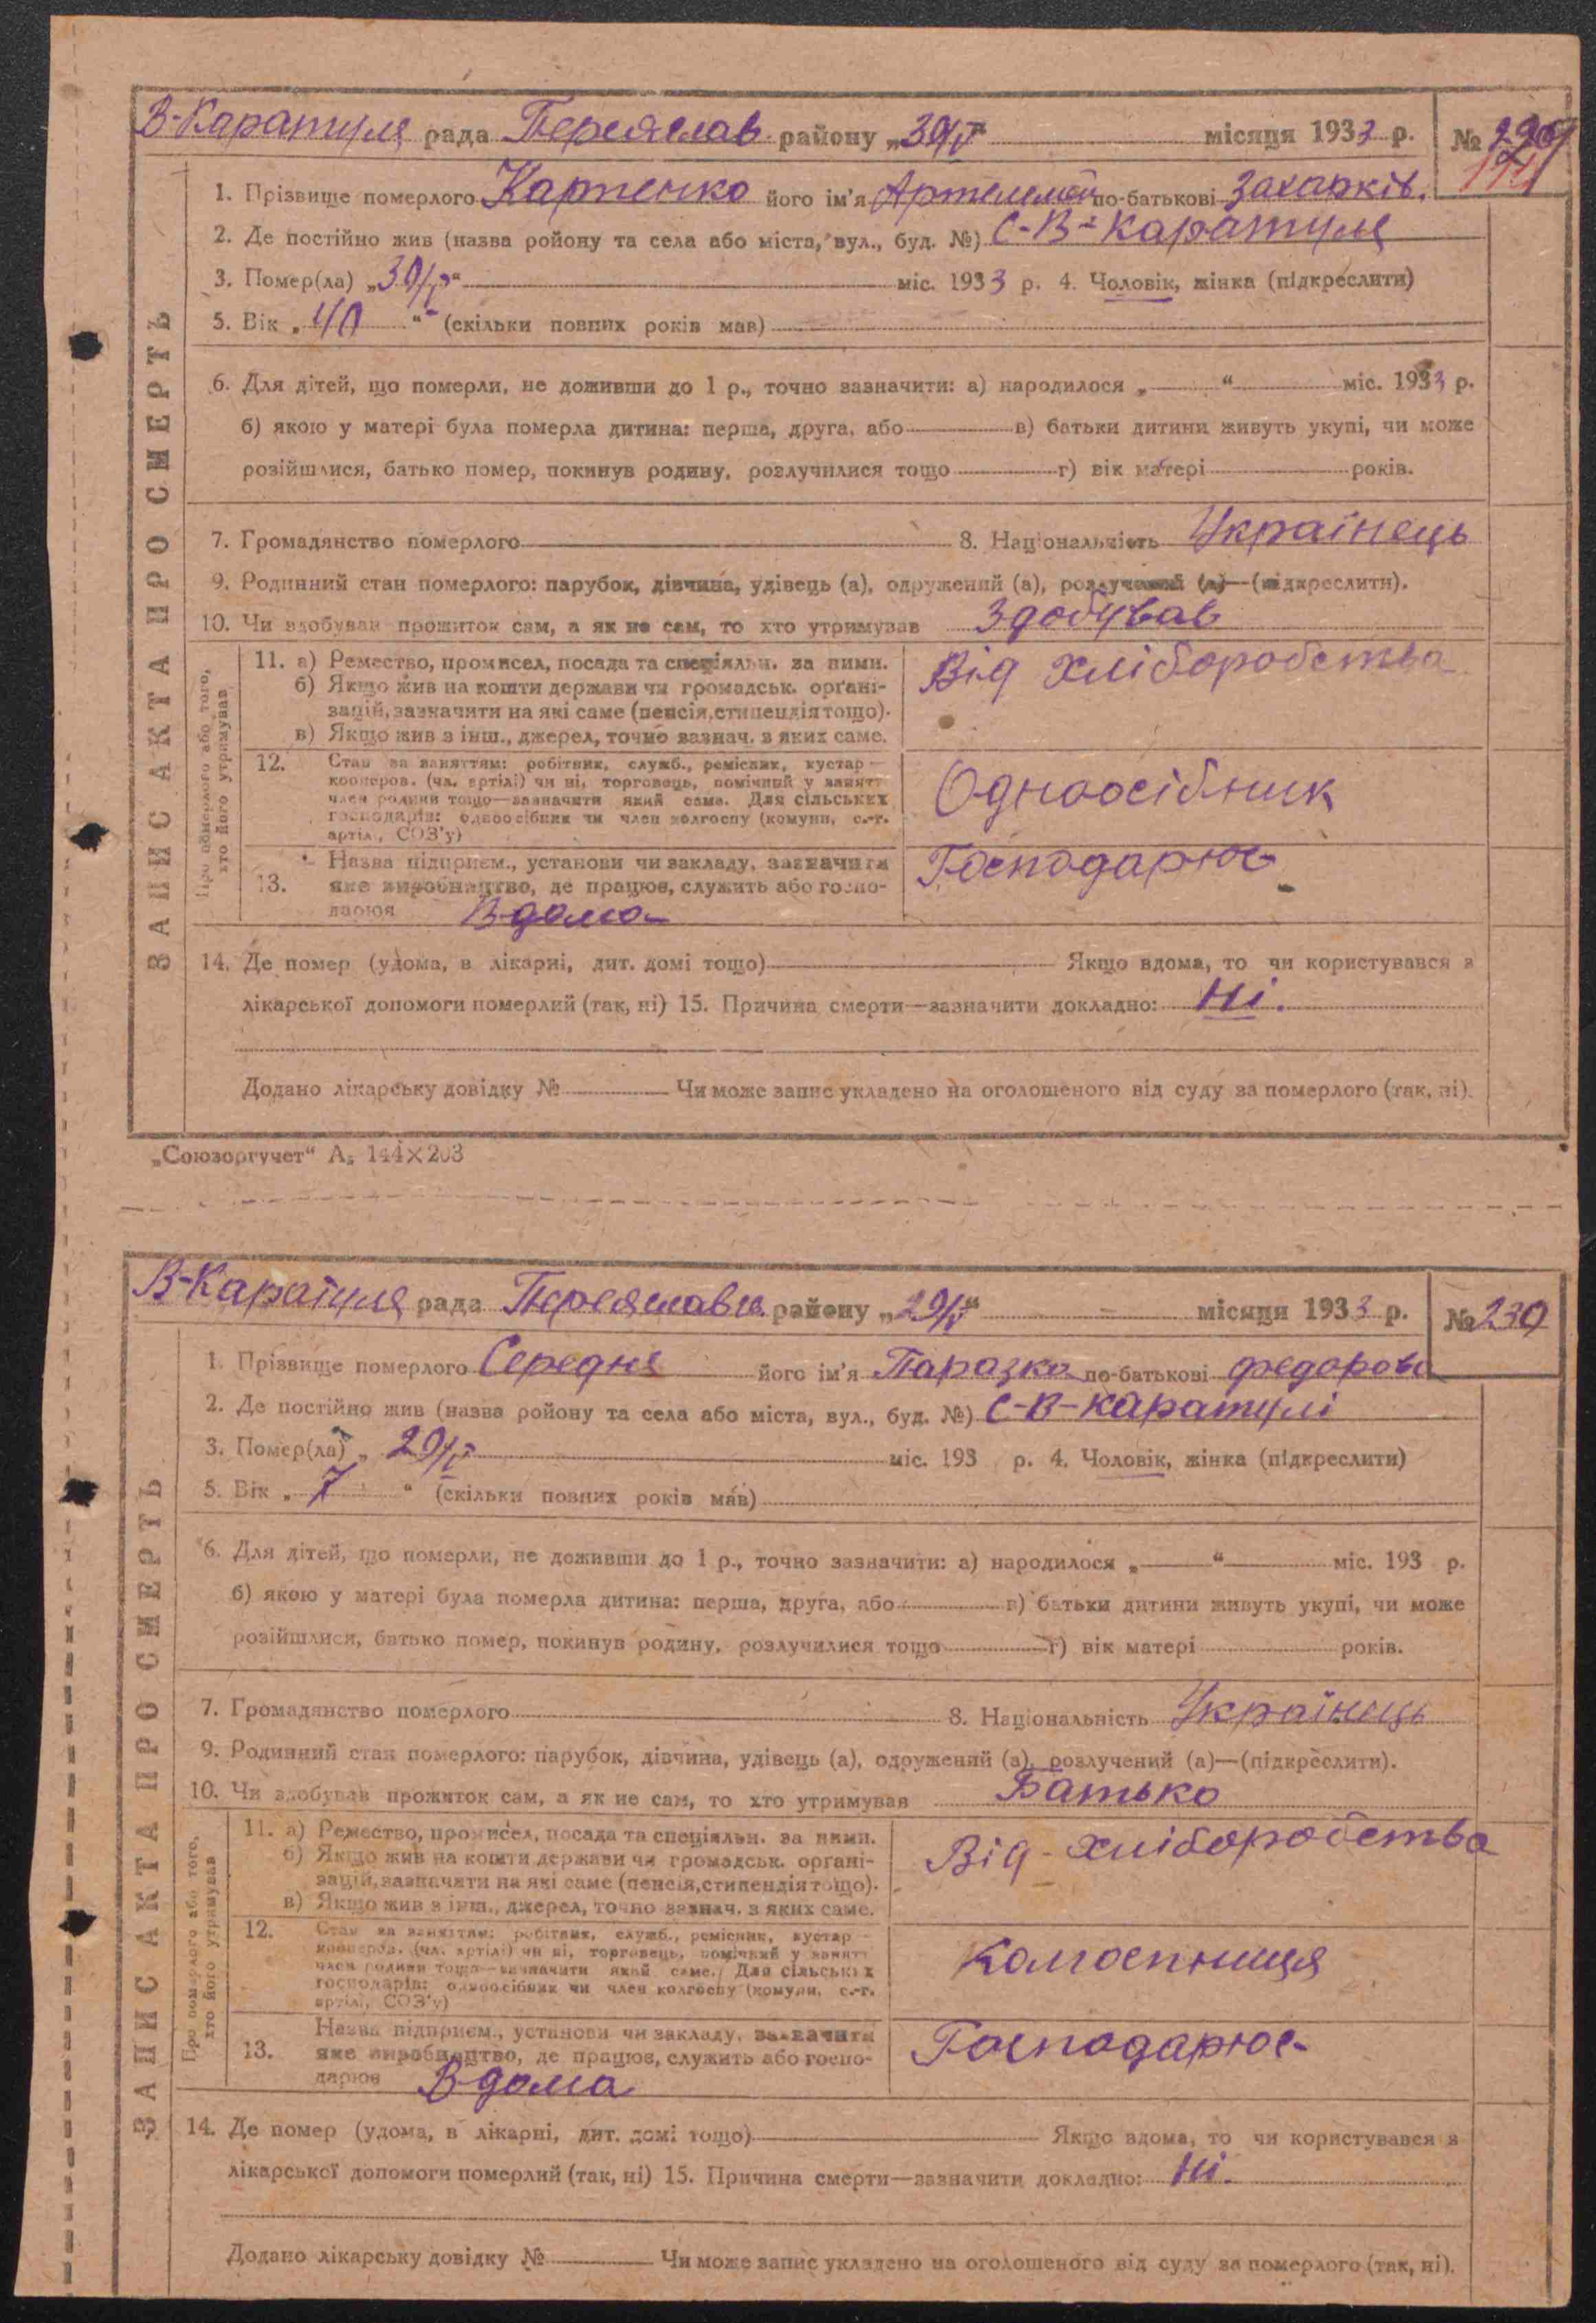 В-Каратуля рада Переяслав району „30/V“ місяця 1933 р. № 229
1. Прізвище померлого Карпенко його ім'я по-батькові Захарків.
2. Де постійно жив (назва ройону та села або міста, вул., буд. №) С-В-Каратуля
3. Помер(ла) „30/V“ міс. 1933 р. 4. Чоловік, жінка (підкреслити)
5. Вік „40“ (скільки повних років мав)
6. Для дітей, що померли, не доживши до 1 р., точно зазначити: а) народилося „ “ міс. 1933 р.
б) якою у матері була померла дитина: перша, друга, або в) батьки дитини живуть укупі, чи може
розійшлися, батько помер, покинув родину, розлучилися тощо г) вік матері років.
7. Громадянство померлого 8. Національність Українець
9. Родинний стан померлого: парубок, дівчина, удівець (а), одружений (а), розлучений (а)—(підкреслити).
10. Чи здобував прожиток сам, а як не сам, то хто утримував Здобував
ЗАПИС АКТА ПРО СМЕРТЬ
Про померлого або того,
хто його утримував
11. а) Ремество, промисел, посада та спеціяльн. за ними.
б) Якщо жив на кошти держави чи громадськ. орґані-
зацій, зазначити на які саме (пенсія, стипендія тощо).
в) Якщо жив з інш., джерел, точно зазнач. з яких саме.
Від хліборобства
12. Стан за заняттям: робітник, служб., ремісник, кустар—
кооперов. (чл. артілі) чи ні, торговець, помічний у занятт
член родини тощо—зазначити який саме. Для сільських
господарів: одноосібник чи член колгоспу (комуни, с.-г.
артілі, СОЗ'у)
Одноосібник
13. Назва підприєм., установи чи закладу, зазначити
яке виробництво, де працює, служить або госпо-
дарює Вдома
Господарює
14. Де помер (удома, в лікарні, дит. домі тощо) Якщо вдома, то чи користувався з
лікарської допомоги померлий (так, ні) 15. Причина смерти—зазначити докладно: Ні.
Додано лікарську довідку № Чи може запис укладено на оголошеного від суду за померлого (так, ні).
„Союзоргучет“ А5 144×203
В-Каратуля рада Переяславск. району „29/V“ місяця 1933 р. № 230
1. Прізвище померлого Середня його ім'я Параска по-батькові федорова
2. Де постійно жив (назва ройону та села або міста, вул., буд. №) С-В-Каратулі
3. Помер(ла) „ 29/V міс. 193 р. 4. Чоловік, жінка (підкреслити)
5. Вік „ 7 “ (скільки повних років мав)
6. Для дітей, що померли, не доживши до 1 р., точно зазначити: а) народилося „ “ міс. 193 р.
б) якою у матері була померла дитина: перша, друга, або в) батьки дитини живуть укупі, чи може
розійшлися, батько помер, покинув родину, розлучилися тощо г) вік матері років.
7. Громадянство померлого 8. Національність Українець
9. Родинний стан померлого: парубок, дівчина, удівець (а), одружений (а), розлучений (а)—(підкреслити).
10. Чи здобував прожиток сам, а як не сам, то хто утримував Батько
ЗАПИС АКТА ПРО СМЕРТЬ
Про померлого або того,
хто його утримував
11. а) Ремество, промисел, посада та спеціяльн. за ними.
б) Якщо жив на кошти держави чи громадськ. орґані-
зацій, зазначити на які саме (пенсія, стипендія тощо).
в) Якщо жив з інш., джерел, точно зазнач. з яких саме.
Від-хліборобства
12. Стан за заняттям: робітник, служб., ремісник, кустар—
кооперов. (чл. артілі) чи ні, торговець, помічний у занятт
член родини тощо—зазначити який саме. Для сільських
господарів: одноосібник чи член колгоспу (комуни, с.-г.
артілі, СОЗ'у)
Колгоспниця
13. Назва підприєм., установи чи закладу, зазначити
яке виробництво, де працює, служить або госпо-
дарює Вдома
Господарює
14. Де помер (удома, в лікарні, дит. домі тощо) Якщо вдома, то чи користувався з
лікарської допомоги померлий (так, ні) 15. Причина смерти—зазначити докладно: Ні.
Додано лікарську довідку № Чи може запис укладено на оголошеного від суду за померлого (так, ні).